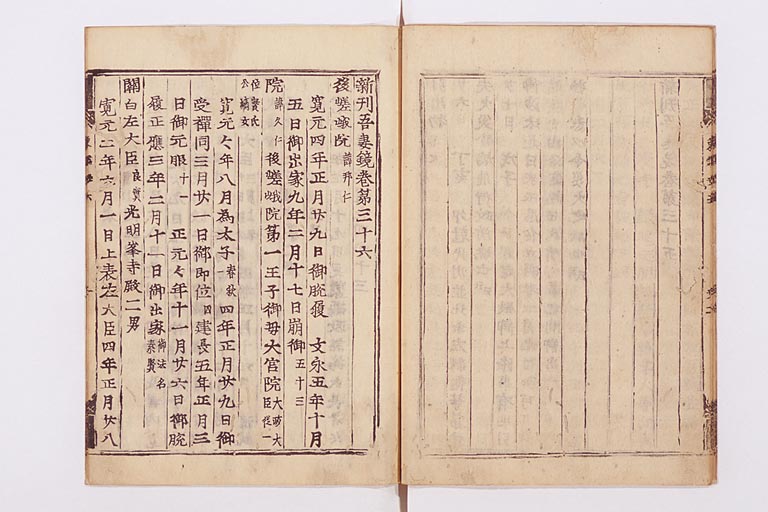 新刊吾妻鏡卷第三十六
後嵯峨院 諱邦仁
寛元四年正月廿九日御脱履 文永五年十月
五日御出家九年二月十七日崩御 五十三
院 諱久仁 後嵯峨院第一王子御母大宮院 大政大臣從一
位實氏公嫡女
寛元々年八月為太子 春秋一 四年正月廿九日御
受禪同三月廿一日御即位 四 建長五年正月三
日御元服 十一 正元々年十一月廿六日御脱
履正應三年二月十一日御出家 御法名素實
關白左大臣 良實 光明峯寺殿二男
寛元二年六月一日上表左大臣四年正月廿八